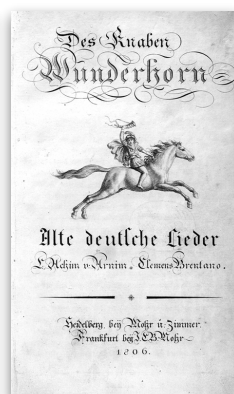 Des Knaben
Wunderhorn
Alte deutsche Lieder
L. Achim v. Arnim. Clemens Brentano.
Heidelberg, bey Mohr u. Zimmer.
Frankfurt bey J. C. B. Mohr
1806.